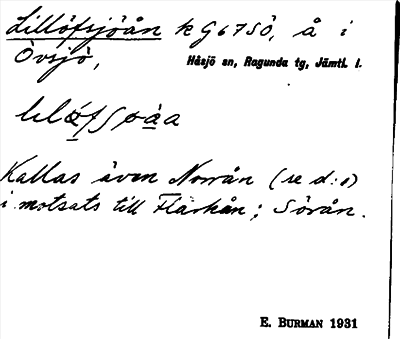 Lillöfsjöån k G 67 SÖ, å i
Övsjö, Håsjö sn, Ragunda tg, Jämtl. l.
Kallas även Norrån (se d:o)
i motsats till Flärkån; Sörån.
E. BURMAN 1931